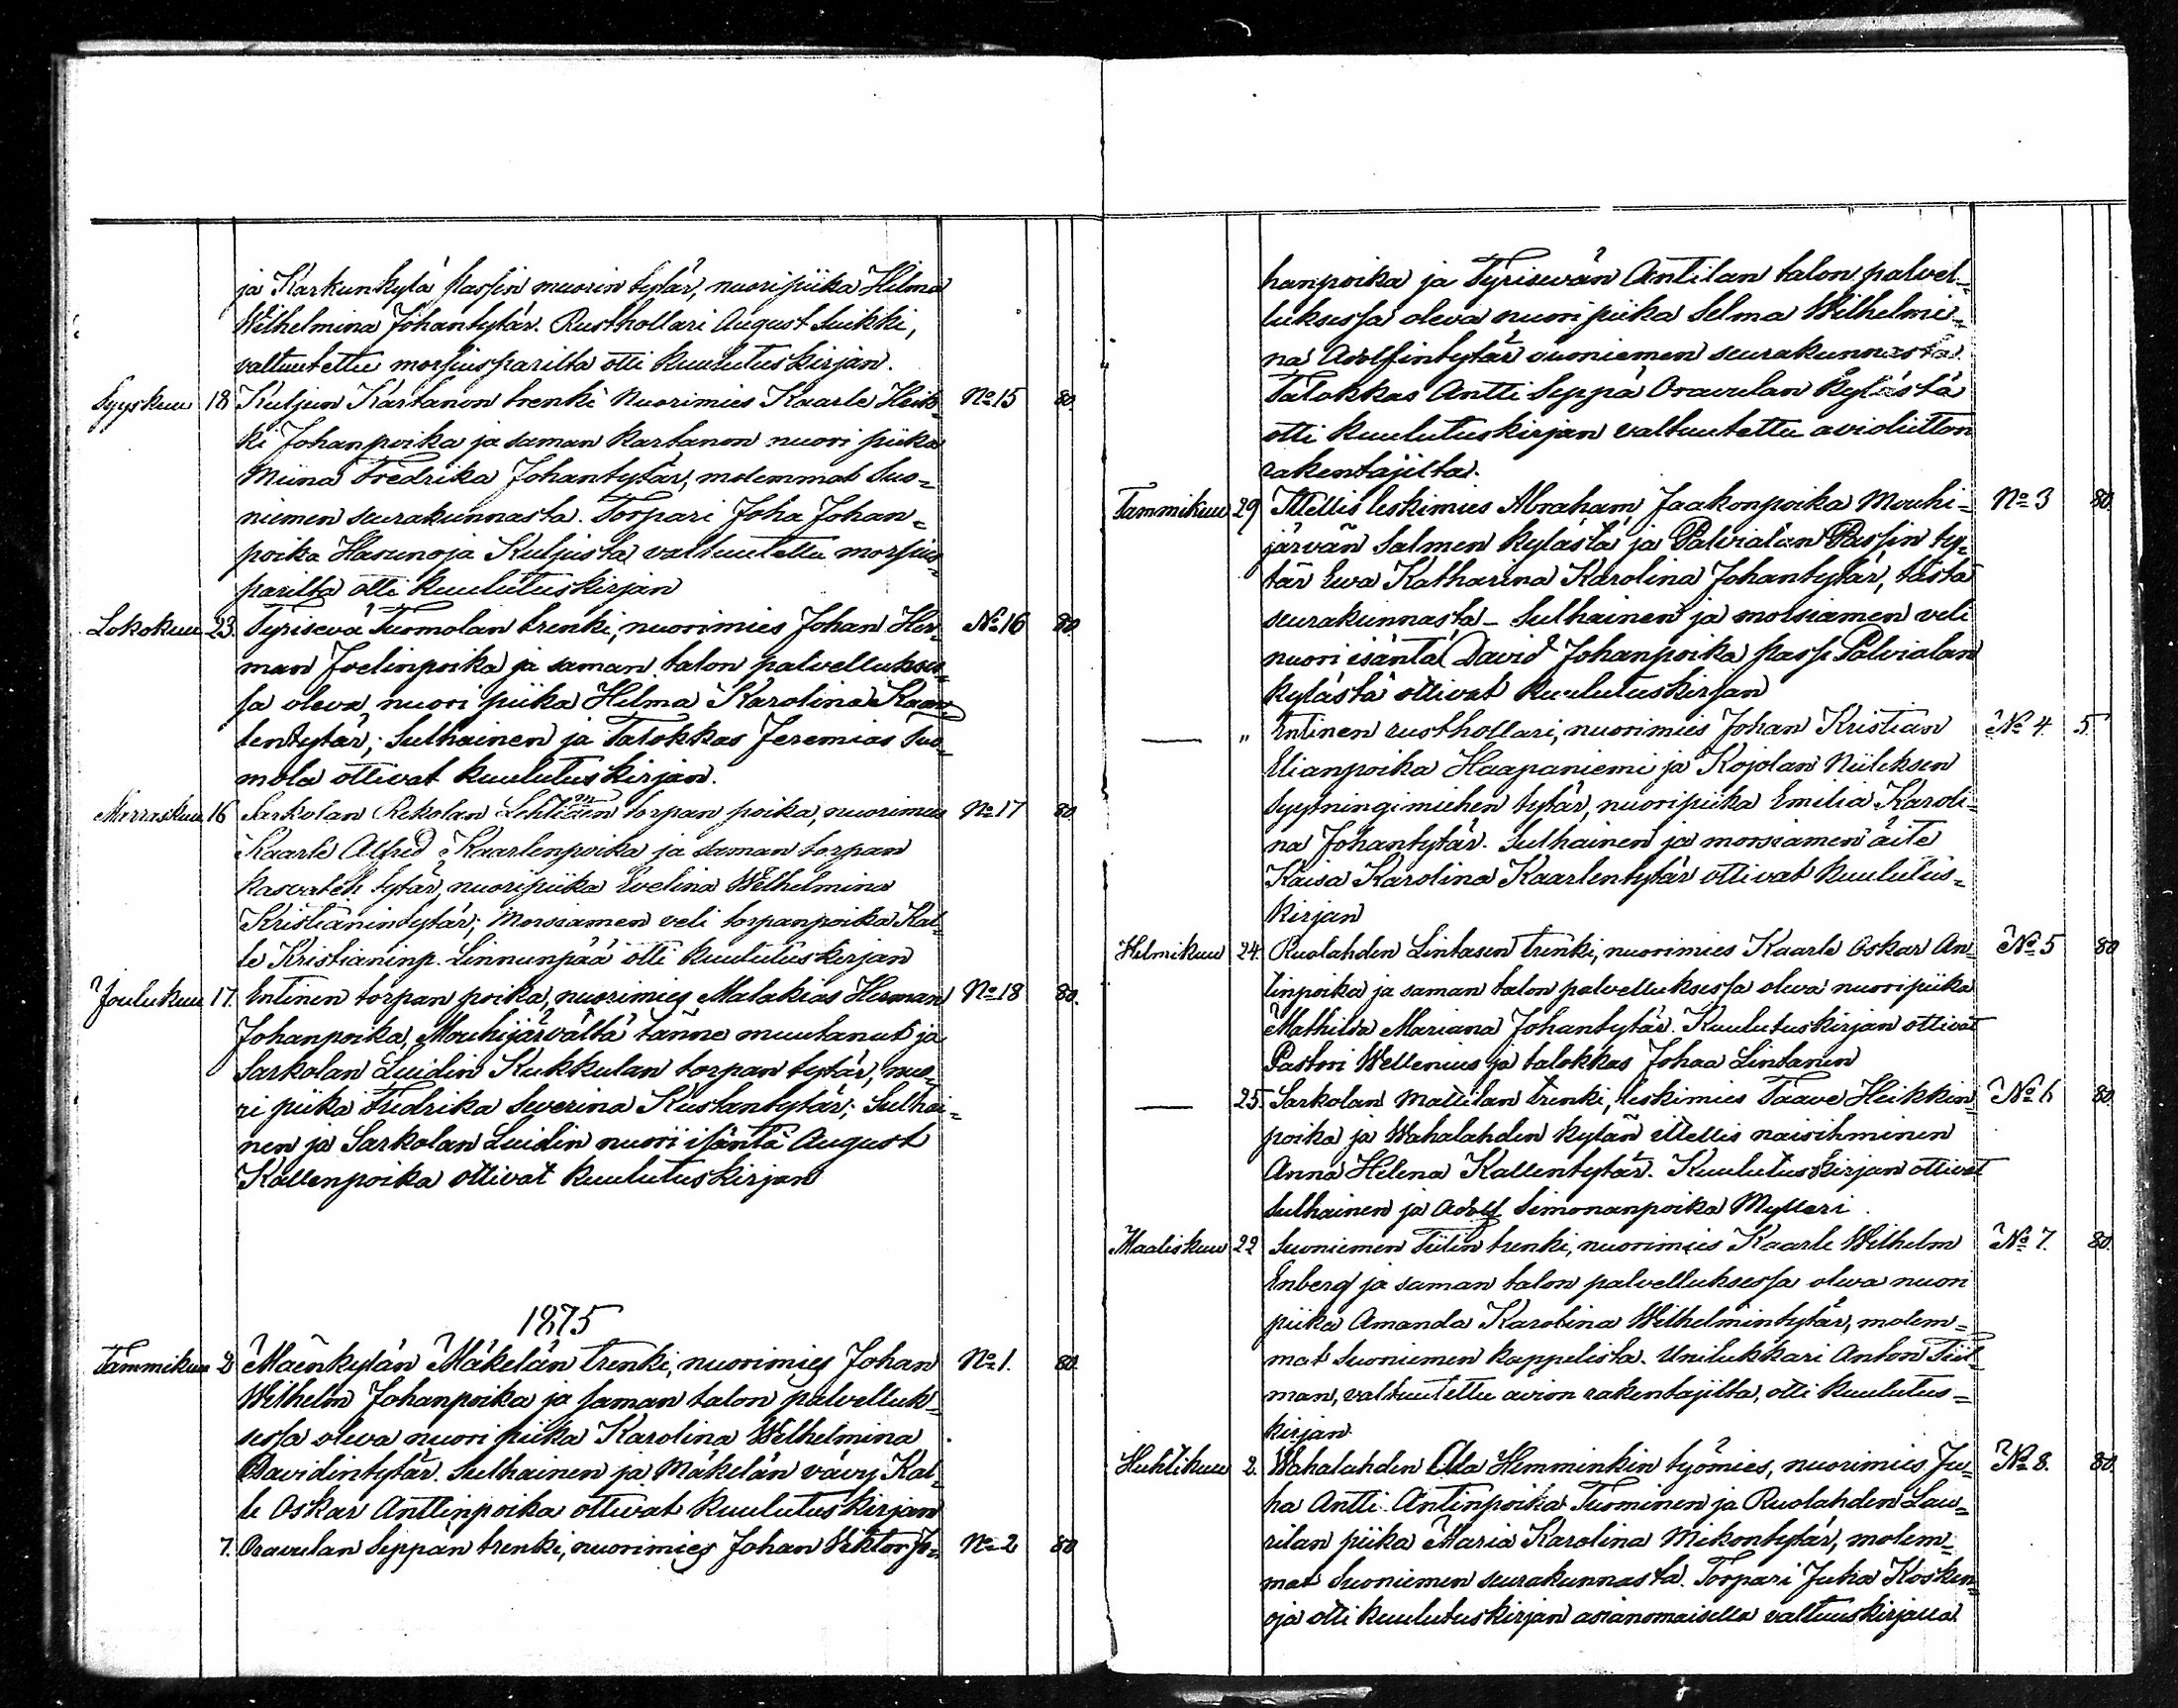 ja Karkunkylä passin muorin tytär, nuoripiika Hilma
Wilhelmina Johantytär. Rusthollari August Suikki,
valtuutettu morsiusparilta otti kuulutuskirjan.
Syyskuu 18 Kuljun Kartanon trenki Nuorimies Kaarle Heik- No 15 80.
ki Johanpoika ja saman kartanon nuori piika
Miina Fredrika Johantytär, molemmat Suo-
niemen seurakunnasta. Torpari Joha Johan-
poika Hasunoja Kuljusta valtuutettu morsius-
parilta otti kuulutuskirjan
Lokokuu 23. Tyrisevä Tuomolan trenki, nuorimies Johan Her- No 16 80
man Joelinpoika ja saman talon palvellukses-
sa oleva nuori piika Hilma Karolina Kaar-
lentytär; Sulhainen ja Talokkas Jeremias Tuo-
mola ottivat kuulutuskirjan.
Marraskuu 16 Sarkolan Rekolan torpan poika, nuorimies No 17 80
Kaarle Alfred Kaarlenpoika ja saman torpan
kasvatek tytär, nuoripiika Evelina Wilhelmina
Kristianintytär; Morsiamen veli torpanpoika Kal-
le Kristianinp. Linnunpää otti kuulutuskirjan
Joulukuu 17. Entinen torpan poika, nuorimies Malakias Herman No 18 80.
Johanpoika, Mouhijärvältä tänne muutanut ja
Sarkolan Luidin Kukkulan torpan tytär, nuo-
ri piika Fredrika Severina Kustantytär; Sulhai-
nen ja Sarkolan Luidin nuori isäntä August
Kallenpoika ottivat kuulutuskirjan
1875
Tammikuu 2 Maenkylän Mäkelän trenki, nuorimies Johan No 1. 80.
Wilhelm Johanpoika ja saman talon palvelluk-
sessa oleva nuori piika Karolina Wilhelmina
Davidintytär. Sulhainen ja Mäkelän vävy Kal-
le Oskar Anttinpoika ottivat kuulutuskirjan
7. Oravulan Seppän trenki, nuorimies Johan Viktor Jo- No 2 80
hanpoika ja Tyrisevän Antilan talon palvel-
luksessa oleva nuori piika Selma Wilhelmi-
na Adolfintytär suoniemen seurakunnasta.
Talokkas Antti Seppä Oravulan kylästä
otti kuulutuskirjan valtuutettu avioliitton
rakentajilta.
Tammikuu 29 Ittellis leskimies Abraham Jaakonpoika Mouhi- No 3 80
järvän Salmen kylästä ja Palvialan Passin ty-
tär Ewa Katharina Karolina Johantytär, tästä
seurakunnasta - Sulhainen ja morsiamen veli
nuori isäntä David Johanpoika passi Palvialan
kylästä ottivat kuulutuskirjan
— " Entinen rusthollari, nuorimies Johan Kristian No 4. 5.
Elianpoika Haapaniemi ja Kojolan Niileksen
Syytningimiehen tytär, nuoripiika Emelia Karoli-
na Johantytär. Sulhainen ja morsiamen äite
Kaisa Karolina Kaarlentytär ottivat kuulutus-
kirjan
Helmikuu 24. Ruolahden Lintasen trenki, nuorimies Kaarle Oskar An- No 5 80
tinpoika ja saman talon palvelluksessa oleva nuoripiika
Mathilda Mariana Johantytär. Kuulutuskirjan ottivat
Pastori Wellenius ja talokkas Johaa Lintanen
— 25. Sarkolan Mattilan trenki, leskimies Taave Heikkin- No 6 80
poika ja Wahalahden kylän ittellis naisihminen
Anna Helena Kallentytär. Kuulutuskirjan ottivat
Sulhainen ja Adolf Simonanpoika Mylleri.
Maaliskuu 22 Suoniemen Tiilin trenki, nuorimies Kaarle Wilhelm No 7. 80.
Enberg ja saman talon palvelluksessa oleva nuori
piika Amanda Karolina Wilhelmintytär, molem-
mat Suoniemen kappelista. Unilukkari Anton Tiil-
man, valtuutettu avion rakentajilta, otti kuulutus-
kirjan.
Huhtikuu 2. Wahalahden Ala Hemminkin työmies, nuorimies Ju- No 8. 80
ha Antti Antinpoika Tuominen ja Ruolahden Lau-
rilan piika Maria Karolina Mikontytär, molem-
mat Suoniemen seurakunnasta. Torpari Juha Kosken-
oja otti kuulutuskirjan asianomaisella valtuuskirjalla